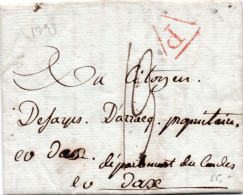 1793
P
Au Citoyen
Desayes Darracq, proprietaire
eo dax, département du Landes
eo daxe